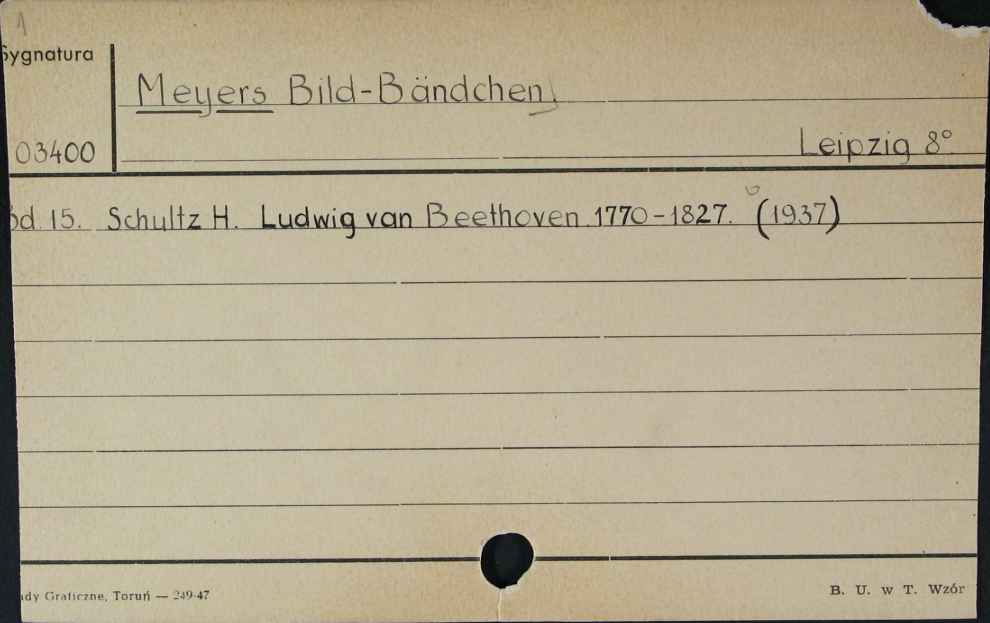 1
Sygnatura
Meyers Bild-Bändchen
03400
Leipzig 8°
Bd. 15. Schultz H. Ludwig van Beethoven 1770-1827. (1937)
Graficzne, Toruń — 249-47
B. U. w T. Wzór